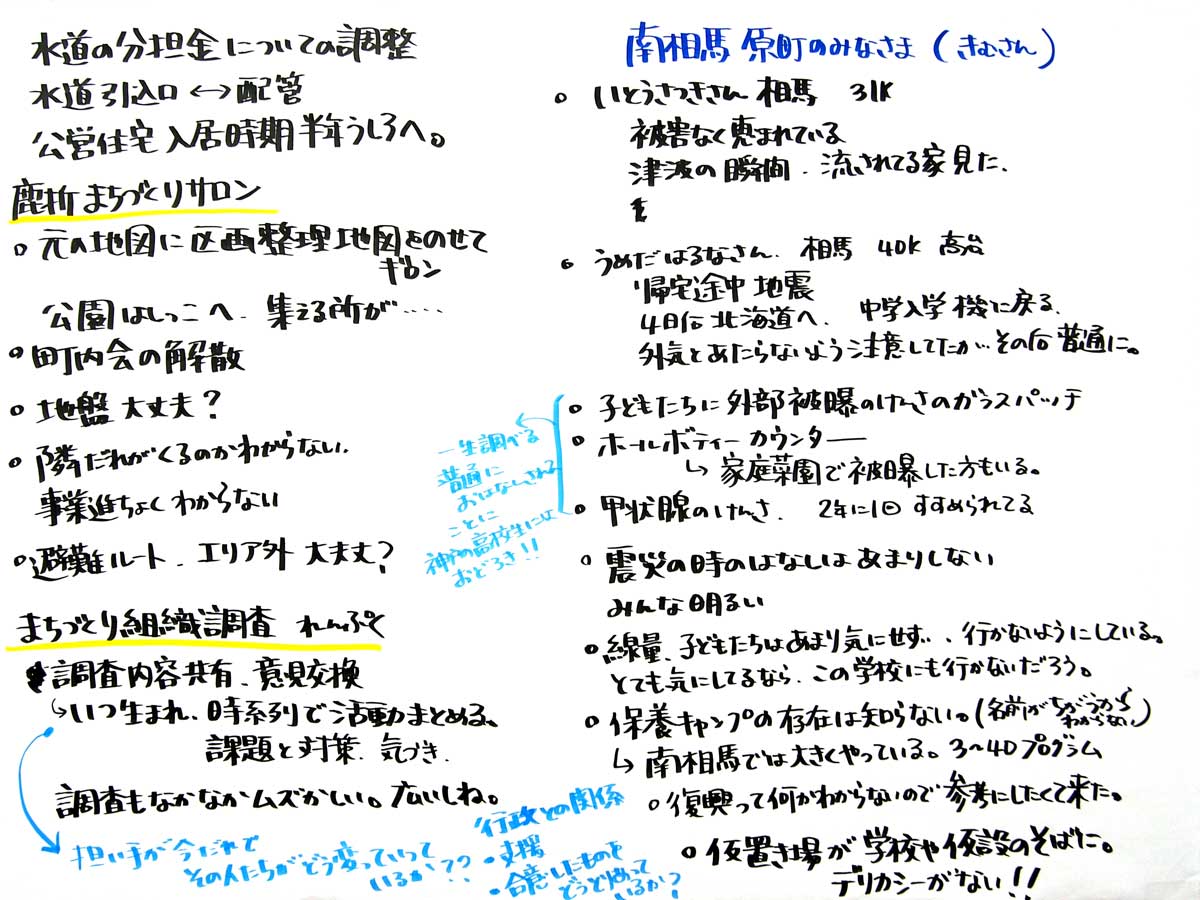 水道の分担金についての調整
水道引込口↔配管
公営住宅入居時期半年うしろへ。
鹿折まちづくりサロン
○ 元の地図に区画整理地図をのせて
ギロン
公園はしっこへ、集える所が‥‥
○ 町内会の解散
○ 地盤大丈夫?
○ 隣だれがくるのかわからない、
事業進ちょくわからない
○ 避難ルート、エリア外大丈夫?
まちづくり組織調査 れんぷく
調査内容共有、意見交換
↳いつ生まれ、時系列で活動まとめる。
課題と対策、気づき、
調査もなかなかムズかしい。広いしね。
担い手が今だれで
その人たちがどう変っていって
いるか??
行政との関係
・支援
・合意したものを
どうとめって
いるか?
南相馬 原町のみなさま(きむさん)
○ いとうさつきさん 相馬 31K
被害なく恵まれている
津波の瞬間、流されてる家見た、
○ うめだはるなさん、相馬 40K 高台
帰宅途中地震
4日后北海道へ、中学入学機に戻る、
外気とあたらないよう注意してたが‥その后普通に。
○ 子どもたちに外部被曝のけんさのガラスバッチ
○ ホールボディーカウンター
↳ 家庭菜園で被曝した方もいる。
○ 甲状腺のけんさ、2年に1回すすめられてる
一生調べる
普通に
おはなしされる
ことに
神戸の高校生には
おどろき!!
○ 震災の時のはなしはあまりしない
みんな明るい
○ 線量、子どもたちはあまり気にせず‥、行かないようにしている。
とても気にしてるなら、この学校にも行かないだろう。
○ 保養キャンプの存在は知らない。(名前がちがうから
わからない)
↳ 南相馬では大きくやっている。3〜40プログラム
○ 復興って何がわからないので参考にしたくて来た。
○ 仮置き場が学校や仮設のそばに。
デリカシーがない!!